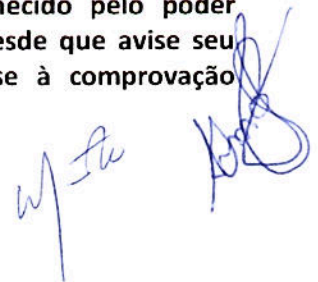 necido pelo poder
esde que avise seu
se à comprovação